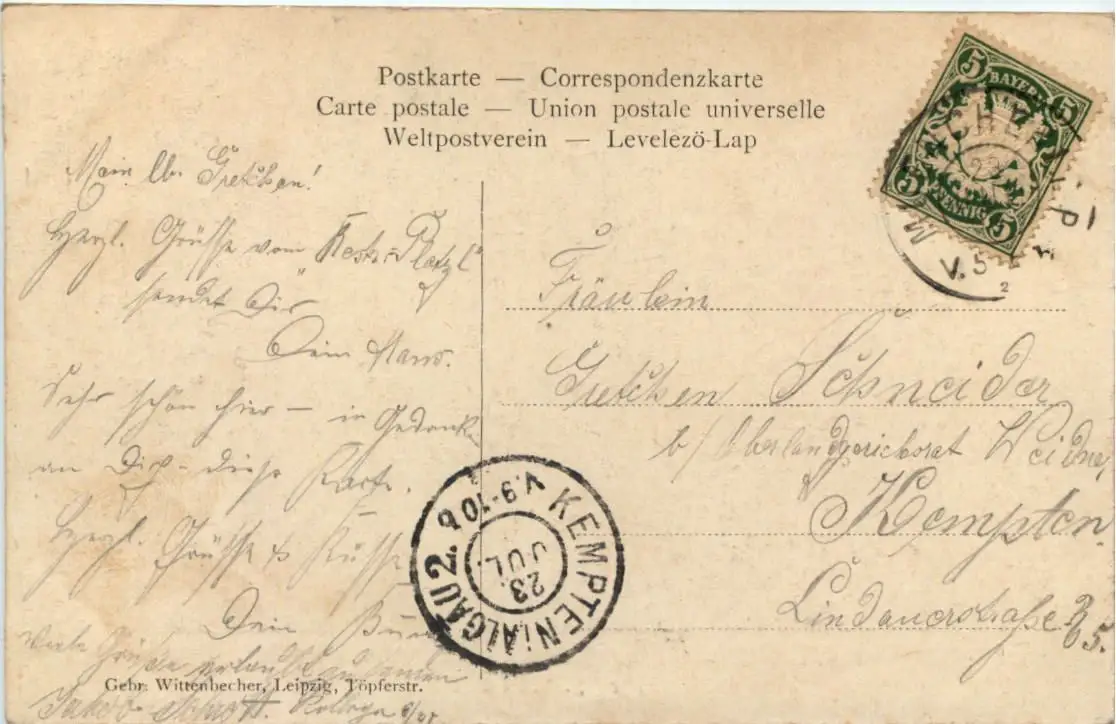 Postkarte — Correspondenzkarte
Carte postale — Union postale universelle
Weltpostverein — Levelezö-Lap
5 BAYERN 5
5 PFENNIG 5
23
V. 5
2
Mein lb. Gretchen!
Herzl. Grüsse vom "Rest. Platzl"
sendet Dir
Dein Hans.
Sehr schön hier – in Gedank
an Dich – diese Karte.
Herzl. Grüsse & Küsse
Dein
Viele Grüsse erlaubt
Kollega
Fräulein
Gretchen Schneider
b/ Oberlandgerichtsrat Weidner
Kempten.
Lindauerstraße
KEMPTEN(ALGÄU 2.
V. 9-10
23.
JUL.
Gebr. Wittenbecher, Leipzig, Töpferstr.